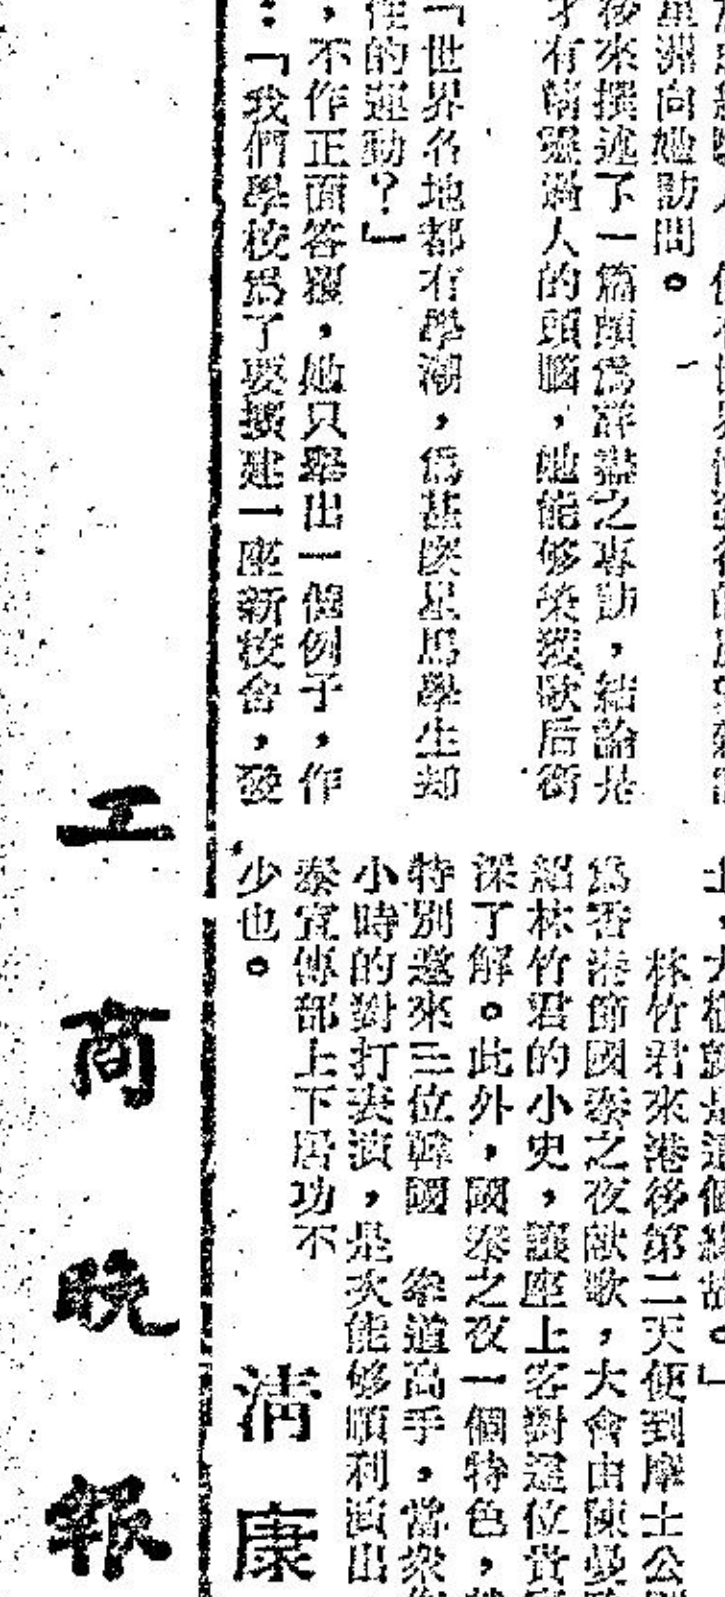 星洲向她訪問。
後來撰述了一篇頗爲詳盡之專訪,結論是
才有精靈過人的頭腦,她能够榮獲歌后銜
「世界名地都有學潮,爲甚麽星馬學生却
的運動?」
,不作正面答覆,她只舉出一個例子,作
:「我們學校爲了要擴建一座新校舍,發
林竹君來港後第二天便到摩士公
爲香港節國泰之夜献歌,大會由陳曼
紹林竹君的小史,讓座上客對這位貴
深了解。此外,國泰之夜一個特色,
特別邀來三位韓國 拳道高手,當衆
小時的對打表演,是次能够順利演出
泰宣傳部上下居功不
少也。
淸康
工商晚報